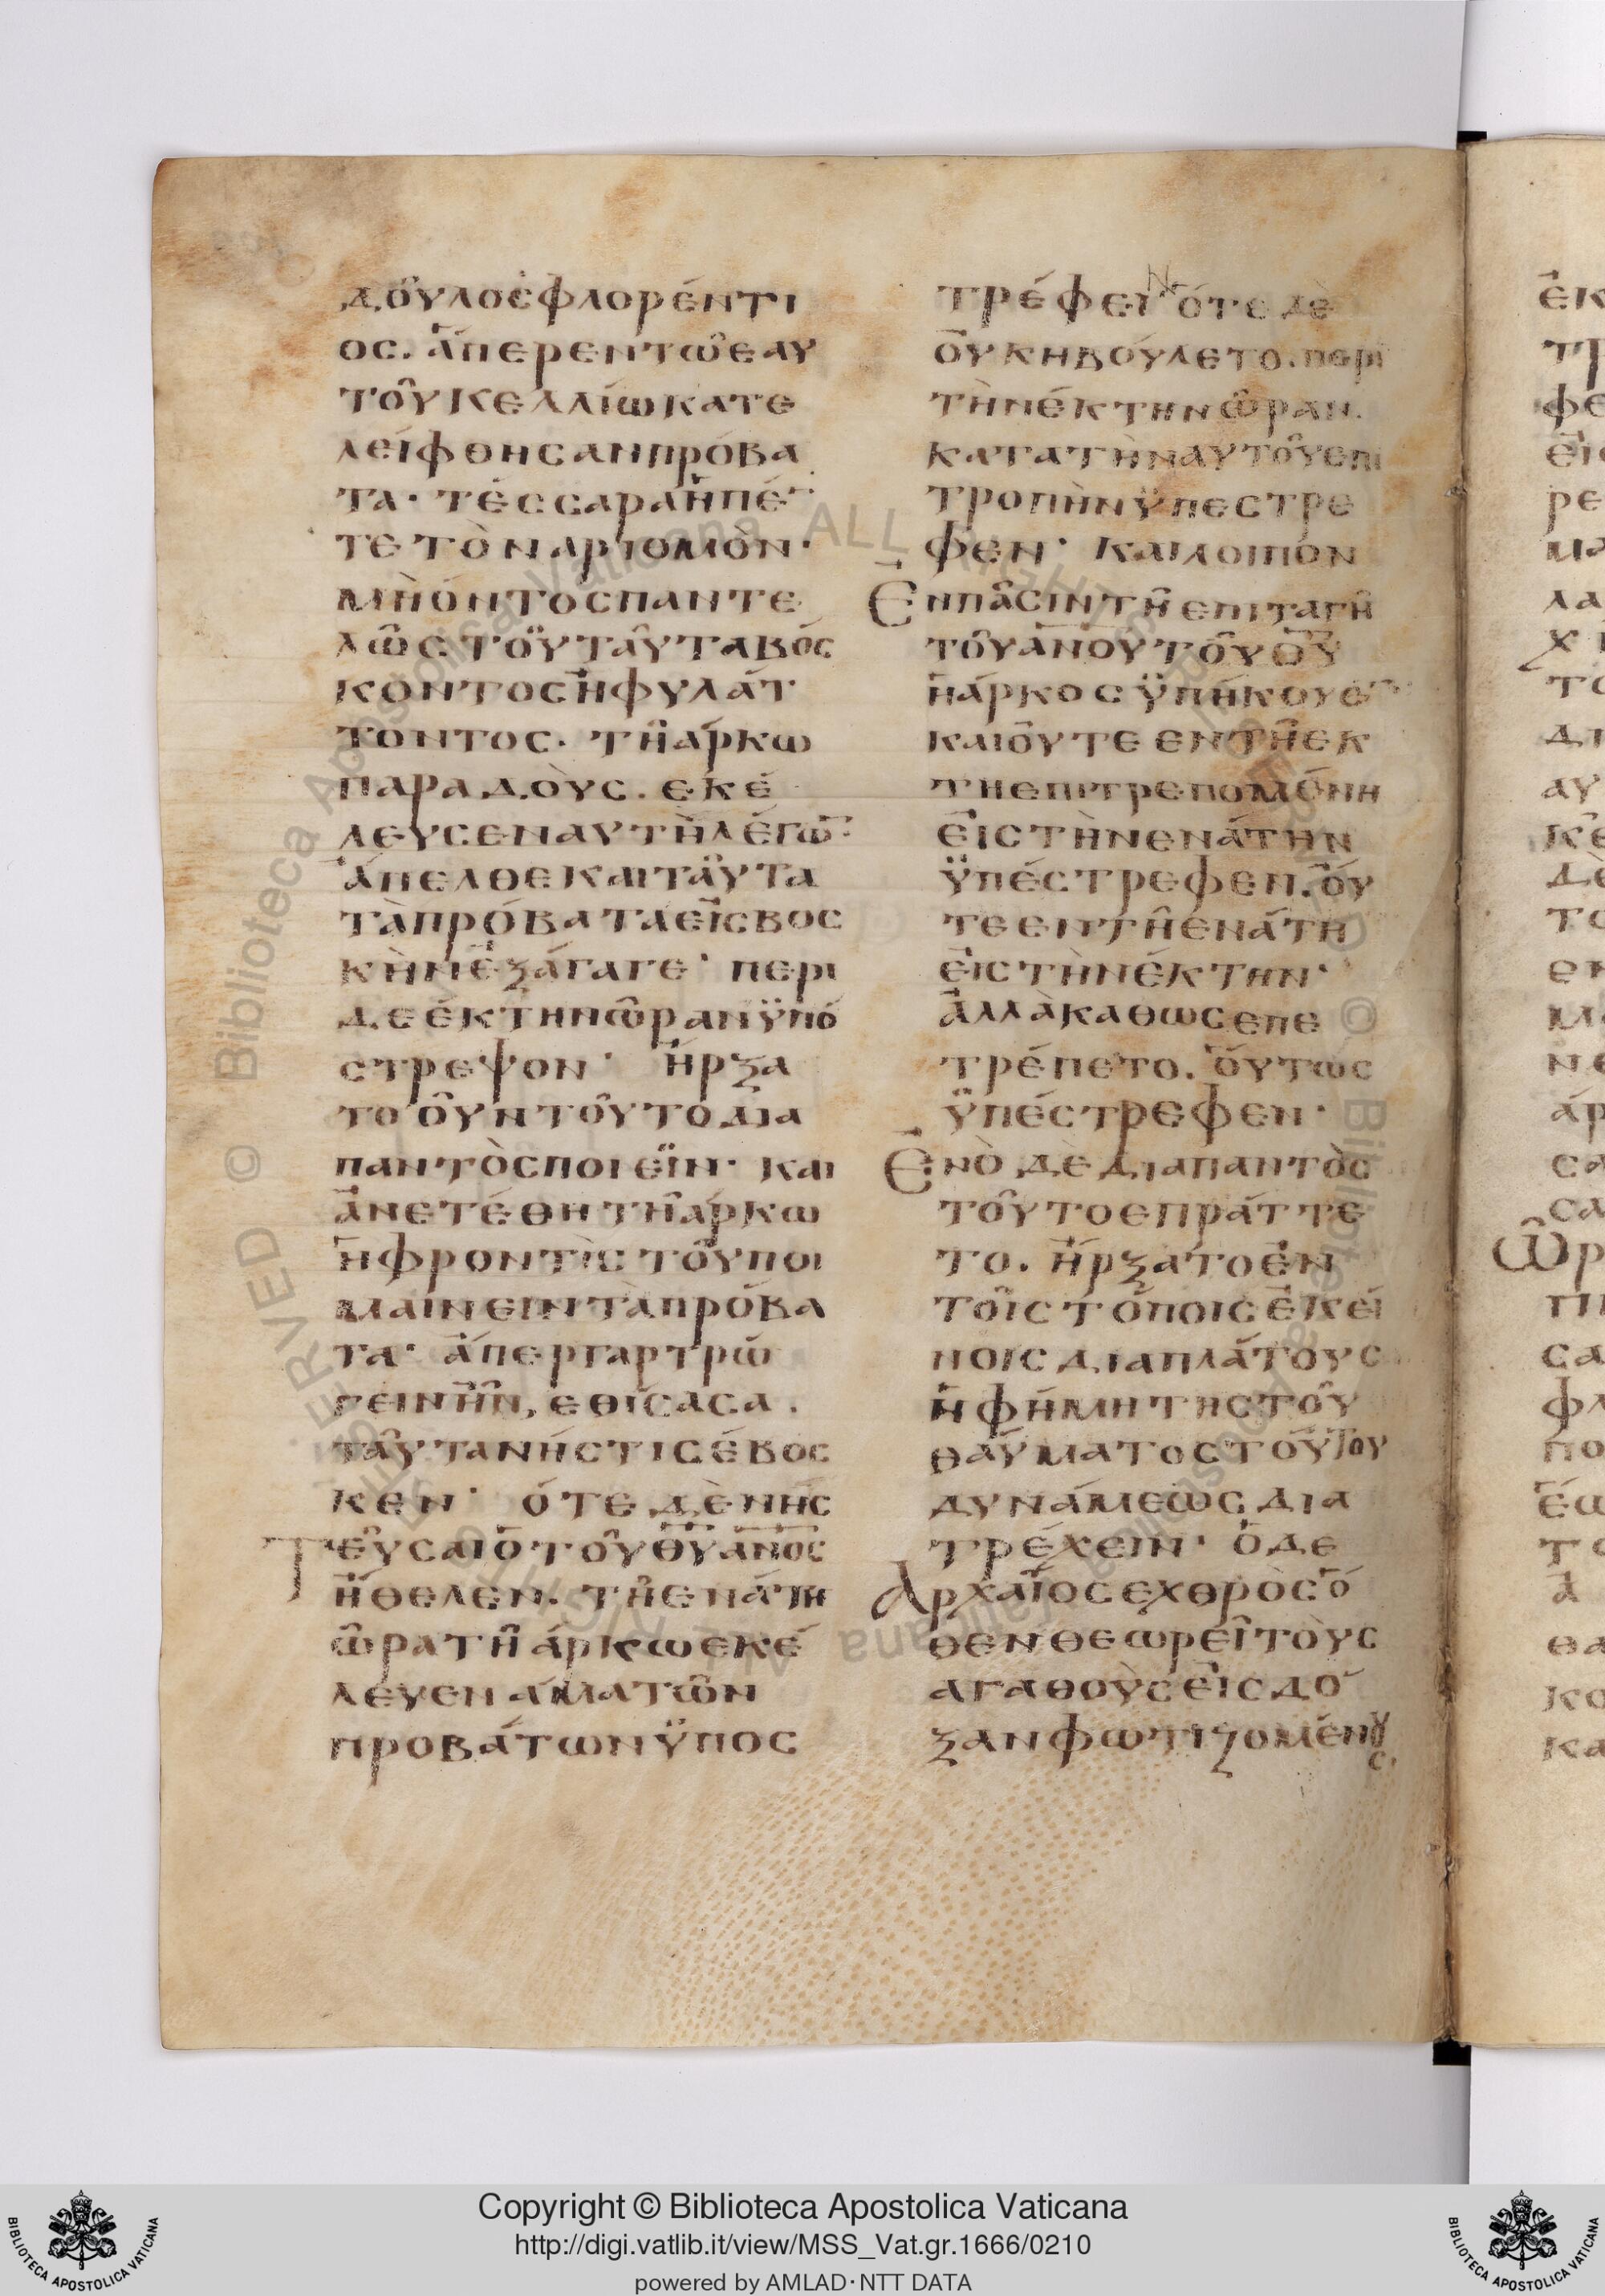 δοῦλοσ φλορέντι
ος. ἅπερ εν τῶ εαυ
τοῦ κελλίω κατε
λείφθησαν πρόβα
τα· τέσσαρα ἢ πέ
τε τὸν ἀριθμὸν·
μὴ όντος παντε
λῶς τοῦ ταῦτα βόσ
κοντος ἢ φυλάτ
τοντος. τῆ άρκω
παραδοὺς. εκέ
λευσεν αυτὴ λέγω
ἄπελθε και ταῦτα
τὰ πρόβατα εἰς βοσ
κὴν ἐξάγαγε· περι
δε έκτην ῶραν ϋπό
στρεψον· ἤρξα
το οῦν τοῦτο δια
παντὸς ποιεῖν· και
ἀνετέθη τῆ άρκω
ἡ φροντὶς τοῦ ποι
μαίνειν τὰ πρόβα
τα· ἅπερ γαρ τρώ
γειν ἦν, εθίσασα.
ταῦτα νήστις έβοσ
κεν· ότε δὲ νησ
Τεῦσαι ὁ τοῦ θῦ ανος
ἤθελεν. τῆ ενάτη
ῶρα τῆ άρκω εκέ
λευεν άμα τῶν
προβάτων ϋποσ
τρέφειν ότε δὲ
οὐκ ηβούλετο. περι
τὴν έκτην ῶραν.
κατα τὴν αυτοῦ επι
τροπὴν ϋπεστρε
φεν· και λοιπὸν
Ἐν πᾶσιν τῆ επιταγῆ
τοῦ ανου τοῦ θῦ
ἡ άρκος ϋπήκουε
και οὔτε εν τῆ έκ
τη επιτρεπομένη
εἰς τὴν ενάτην
ϋπέστρεφεν. οὔ
τε εν τῆ ενάτη
εἰς τὴν έκτην·
ἀλλὰ καθως επε
τρέπετο. ούτως
ϋπέστρεφεν·
Ἐν ὸ δὲ διαπαντὸς
τοῦτο επράττε
το. ἤρξατο ἐν
τοῖς τόποις ἐκεί
νοις διαπλάτους
ἡ φήμη της τοῦ
θαύματος τούτου
δυνάμεὼς δια
τρέχειν· ὁ δε
Αρχαῖος εχθρὸς ὅ
θεν θεωρεῖ τὸυς
αγαθοὺς εἰς δό
ξαν φωτιζομένους
Copyright © Biblioteca Apostolica Vaticana
http://digi.vatlib.it/view/MSS_Vat.gr.1666/0210
powered by AMLAD·NTT DATA
BIBLIOTECA APOSTOLICA VATICANA
BIBLIOTECA APOSTOLICA VATICANA